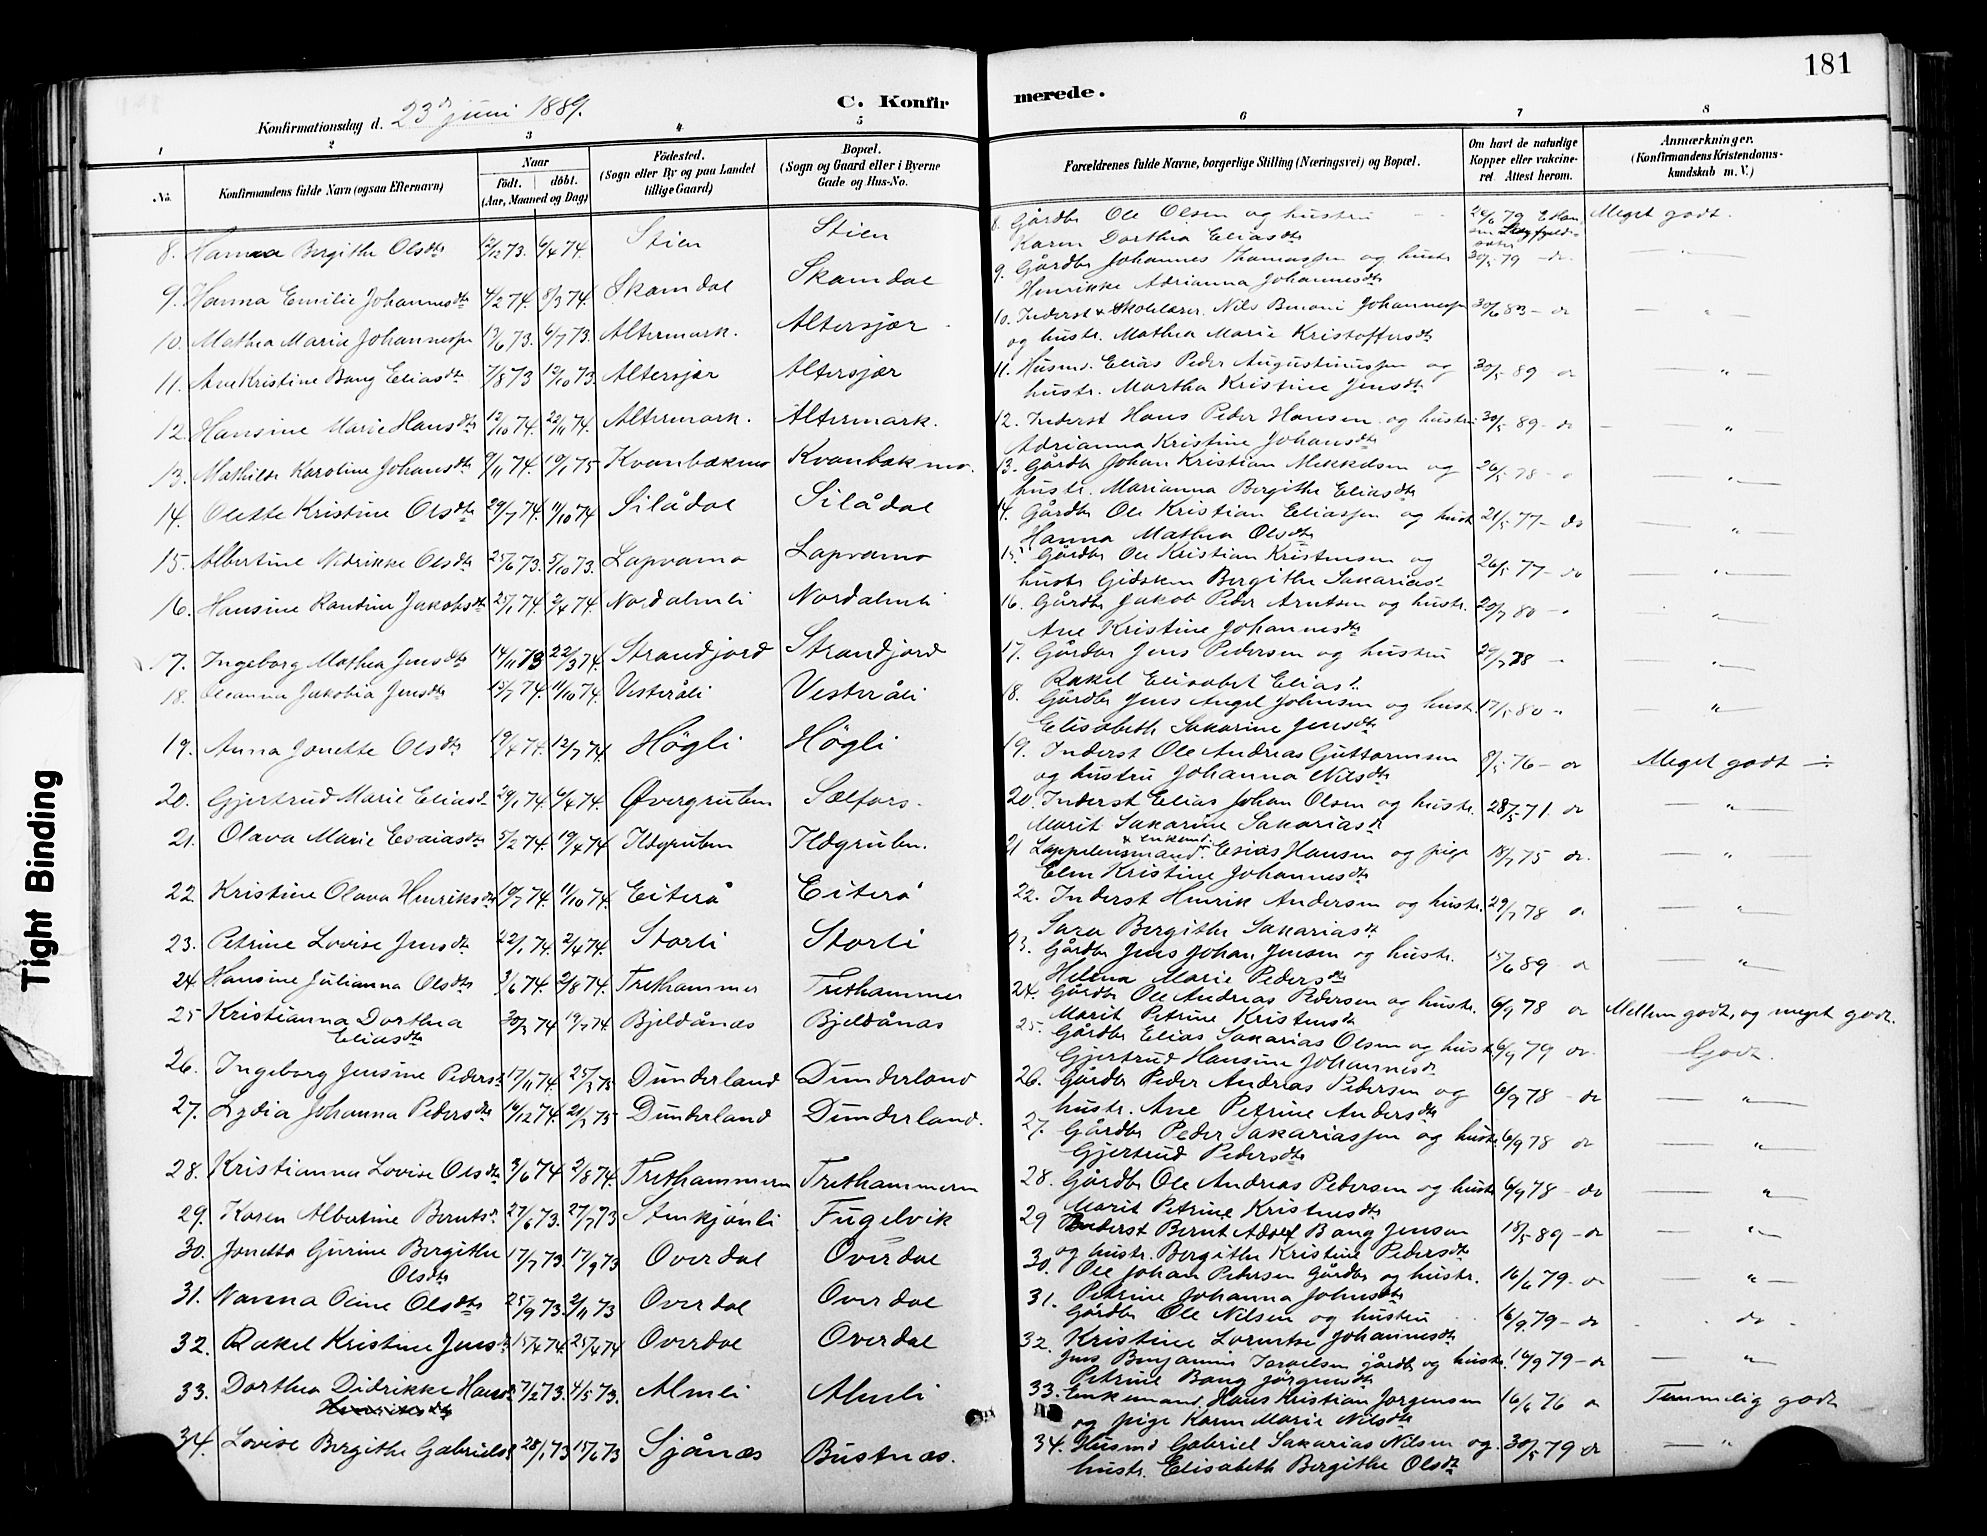 181
C. Konfirmerede.
Konfirmationsdag d. 23d juni 1889.
1 2 3 4 5 6 7 8
No. Konfirmandens fulde Navn (ogsaa Efternavn) Naar født. døbt. (Aar, Maaned og Dag) Fødested. (Sogn eller By og paa Landet tillige Gaard) Bopæl. (Sogn og Gaard eller i Byerne Gade og Hus-No.
Forældrenes fulde Navne, borgerlige Stilling (Næringsvei) og Bopæl. Om havt de naturlige Kopper eller vaccineret. Attest herom. Anmærkninger. (Konfirmandens Kristendomskundskab m. V.)
8. Hanna Bergithe Olsdtr 6/4 74. Stien Stien
8. Gårdbr Ole Olsen og hustru Karen Dorthea Eliasdtr Meget godt.
9. Hanna Emilie Johannesdtr 4/2 74. 8/3 74. Skamdal Skamdal
9. Gårdbr Johannes Thomassen og hustr Henrikke Adrianna Johannesdtr 30/5 79 - do. "
10. Mathea Maria Johannesen 13/6 73. 6/7 73. Altermark. Altersjær
10. Inderst & Skolelærer Nils Benoni Johannessen og hustr. Mathea Marie Kristoffersdtr 30/6 83 - do "
11. Ane Kristine Bang Eliasdtr 7/8 73 12/10 73. Altersjær Altersjær
11. Husmd. Elias Peder Augustinussen og hustr. Martha Kristine Jensdtr 30/5 89 - do "
12. Hansine Marie Hansdtr 12/10 74. 22/11 74. Altermark. Altermark.
12. Inderst Hans Peder Hansen og hustru Adrianna Kristine Johansdtr 30/5 89 - do "
13. Mathilde Karoline Johansdtr 9/11 74. 10/1 75 Kvanbækmo Kvanbækmo.
13. Gårdbr Johan Kristian Mikkelsen og hustr. Marianna Bergithe Eliasdtr 26/5 78 - "
14. Olette Kristine Olsdtr 29/7 74. 11/10 74 Silådal Silådal
14. Gårdbr Ole Kristian Eliassen og hust Hanna Mathea Olsdtr 21/5 77 - do "
15. Albertine Nidrikke Olsdtr 25/6 73. 5/10 73. Lapvamo Lapvamo
15. Gårdbr Ole Kristian Kristensen og hustr Gidsken Bergithe Sakariasd 26/5 77 - do "
16. Hansine Randine Jakobsdtr 25/1 74. 2/4 74. Nordalmli Nordalmli
16. Gårdbr Jakob Peder Arntsen og hustr. Ane Kristine Johannesdtr 20/7 80 - "
17. Ingeborg Mathea Jensdtr 14/11 73 22/3 74. Strandjord Strandjord
17. Gårdbr Jens Pedersen og hustru Rakel Elisabet Eliasd. 29/7 78 - "
18. Oleanna Jakobia Jensdtr 15/7 74. 11/10 74. Vesteråli Vesteråli
18. Gårdbr Jens Angel Johnsen og hust. Elisabeth Sakarine Jensdtr 17/5 80 - "
19. Anna Jonette Olsdtr 19/4 74. 12/7 74. Högli Högli
19. Inderst Ole Andreas Guttormsen og hustru Johanna Nilsdtr 8/5 76 - do Meget godt ÷
20. Gjertrud Marie Eliasd 29/1 74. 6/4 74. Øvergruben Sælfors.
20. Inderst Elias Johan Olsen og hustr. Marit Sakarine Sakariasd 28/5 71. do "
21. Olava Marie Esaiasdtr 5/2 74. 19/4 74 Ildgruben Ildgruben.
21 Lappelensmand & enkemd. Esias Hansen og pige Elen Kristine Johannesdtr 18/7 75 do. "
22. Kristine Olava Henriksdtr 19/7 74. 11/10 74. Eiterå Eiterå
22. Inderst Henrik Andersen og hustr. Sara Bergithe Sakariasd 29/7 78 "
23. Petrine Lovise Jensdtr 22/1 74. 2/4 74. Storli Storli
23. Gårdbr Jens Johan Jensen og hustr. Helena Marie Pedersdtr 15/6 89 do "
24. Hansine Julianna Olsdtr 3/6 74. 2/8 74. Trethammer Trethammer
24. Gårdbr Ole Andreas Pedersen og hustr. Marit Petrine Kristensdtr 6/9 78 do Mellem godt, og meget godt.
25 Kristianna Dorthea Eliasdtr 30/3 74 19/7 74 Bjeldånæs Bjeldånæs
25. Gårdbr Elias Sakarias Olsen og hust Gjertrud Hansine Johannesd 6/9 79 do. Godt.
26. Ingeborg Jensine Pedersd 17/11 74. 25/3 75 Dunderland Dunderland
26. Gårdbr Peder Andreas Pedersen og hustr. Ane Petrine Andersdtr 6/9 78 - do "
27. Lydia Johanna Pedersdtr 19/12 74. 21/3 75 Dunderland Dunderland.
27. Gårdbr Peder Sakariassen og hustr Gjertrud Pedersdtr 6/9 78 do "
28. Kristianna Lovise Olsdtr 3/6 74 2/8 74. Trethammeren Trethammeren
28. Gårdbr Ole Andreas Pedersen og hustr Marit Petrine Kristensdtr 6/9 78 - do "
29. Karen Albertine Berntsd 27/6 73. 27/7 73 Stenkjønli Fugelvik
29 Inderst Bernt Adolf Bang Jensen og hustr. Bergithe Kristine Pedersdtr 18/5 89 - do "
30. Jonetta Gurine Bergithe Olsdtr 17/7 73. 17/9 73 Overdal Overdal
30. Ole Johan Petersen Gårdbr og hustr. Petrine Johanna Johnsdtr 16/6 79 - do "
31. Nanna Oline Olsdtr 25/9 73. 2/11 73 Overdal Overdal
31. Gårdbr Ole Nilsen og hustru Kristine Lorentse Johannesdtr 16/9 79 - do do
32. Rakel Kristine Jensd 15/4 74. 25/4 74 Overdal Overdal
32. Jens Benjamin Israelsen gårdbr og hustr. Petrine Bang Jörgensdtr 14/9 79 - do "
33. Dorthea Didrikke Hansd 7/2 73. 4/5 73. Almli Almli
33. Enkemand Hans Kristian Jørgensen og pige Karen Marie Nilsdtr 16/6 76 do Temmelig godt
34. Lovise Bergithe Gabrielsd 28/1 73 15/6 73 Sjånæs Bustnæs.
34. Husmd Gabriel Sakarias Nilsen og hustr. Elisabeth Bergithe Olsdtr 30/5 79 do "
Tight Binding